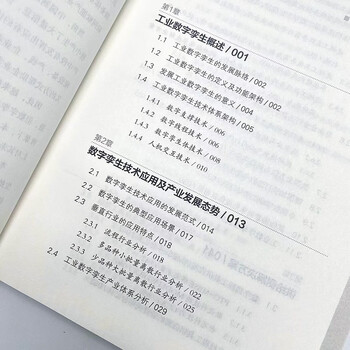 第1章
工业数字孪生概述 / 001
1.1 工业数字孪生的发展脉络 / 002
1.2 工业数字孪生的定义及功能架构 / 002
1.3 发展工业数字孪生的意义 / 004
1.4 工业数字孪生技术体系架构 / 005
1.4.1 数字支撑技术 / 006
1.4.2 数字线程技术 / 006
1.4.3 数字孪生体技术 / 008
1.4.4 人机交互技术 / 010
第2章
数字孪生技术应用及产业发展态势 / 013
2.1 数字孪生技术应用的发展范式 / 014
2.2 数字孪生的典型应用场景 / 017
2.3 垂直行业的应用特点 / 018
2.3.1 流程行业分析 / 018
2.3.2 多品种小批量离散行业分析 / 022
2.3.3 少品种大批量离散行业分析 / 025
2.4 工业数字孪生产业体系分析 / 029